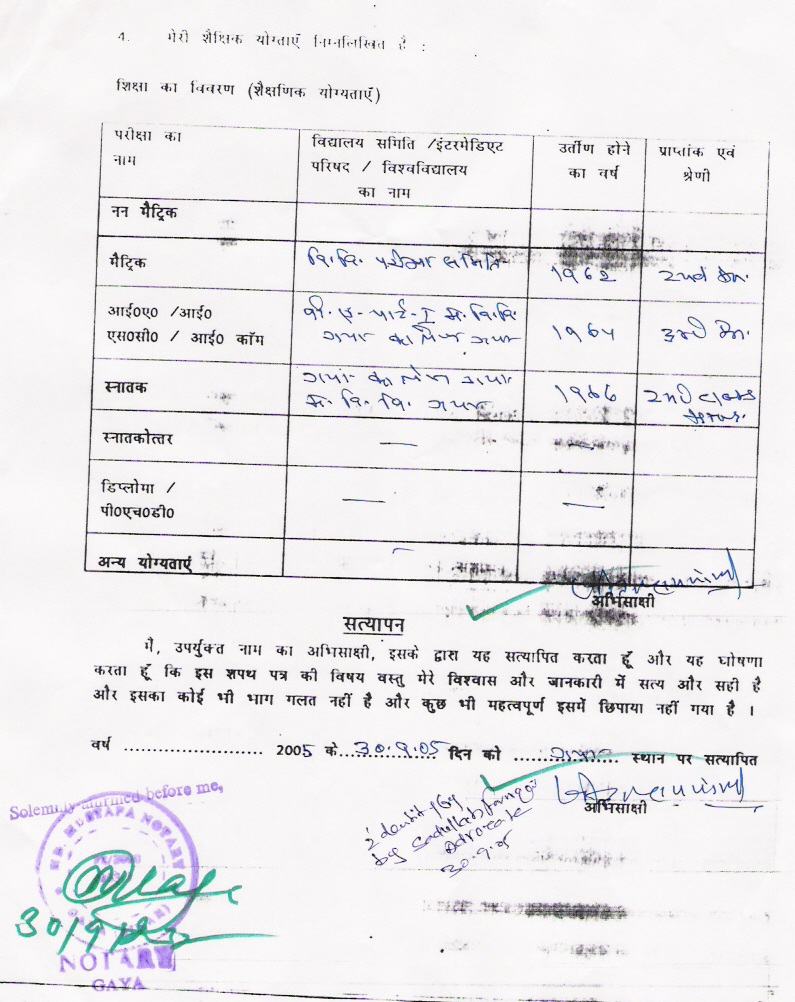 4. मेरी शैक्षिक योग्ताएँ निम्नलिखित है :
शिक्षा का विवरण (शैक्षणिक योग्यताएँ)
परीक्षा का नाम
विद्यालय समिति /इंटरमेडिएट
परिषद / विश्वविद्यालय
का नाम
उर्तीण होने
का वर्ष
प्राप्तांक एवं
श्रेणी
नन मैट्रिक
मैट्रिक
बि. वि. परीक्षा समिति
1962
2nd
आई०ए० /आई०
एस०सी० / आई० कॉम
बी. ए. पार्ट-I म. वि. वि.
गया कालेज गया
1964
3rd
स्नातक
गया कालेज गया
म. वि. वि. गया
1966
2nd class
स्नातकोत्तर
—
—
डिप्लोमा /
पी०एच०डी०
—
—
अन्य योग्यताएं
अभिसाक्षी
सत्यापन
मैं, उपर्युक्त नाम का अभिसाक्षी, इसके द्वारा यह सत्यापित करता हूँ और यह घोषणा
करता हूँ कि इस शपथ पत्र की विषय वस्तु मेरे विश्वास और जानकारी में सत्य और सही है
और इसका कोई भी भाग गलत नहीं है और कुछ भी महत्वपूर्ण इसमें छिपाया नहीं गया है ।
वर्ष ...................... 2005 के 30.9.05 दिन को गया स्थान पर सत्यापित
अभिसाक्षी
Solemnly affirmed before me,
by
Advocate
30.9.05
MD. MUSTAFA NOTARY
NOTARY
GAYA